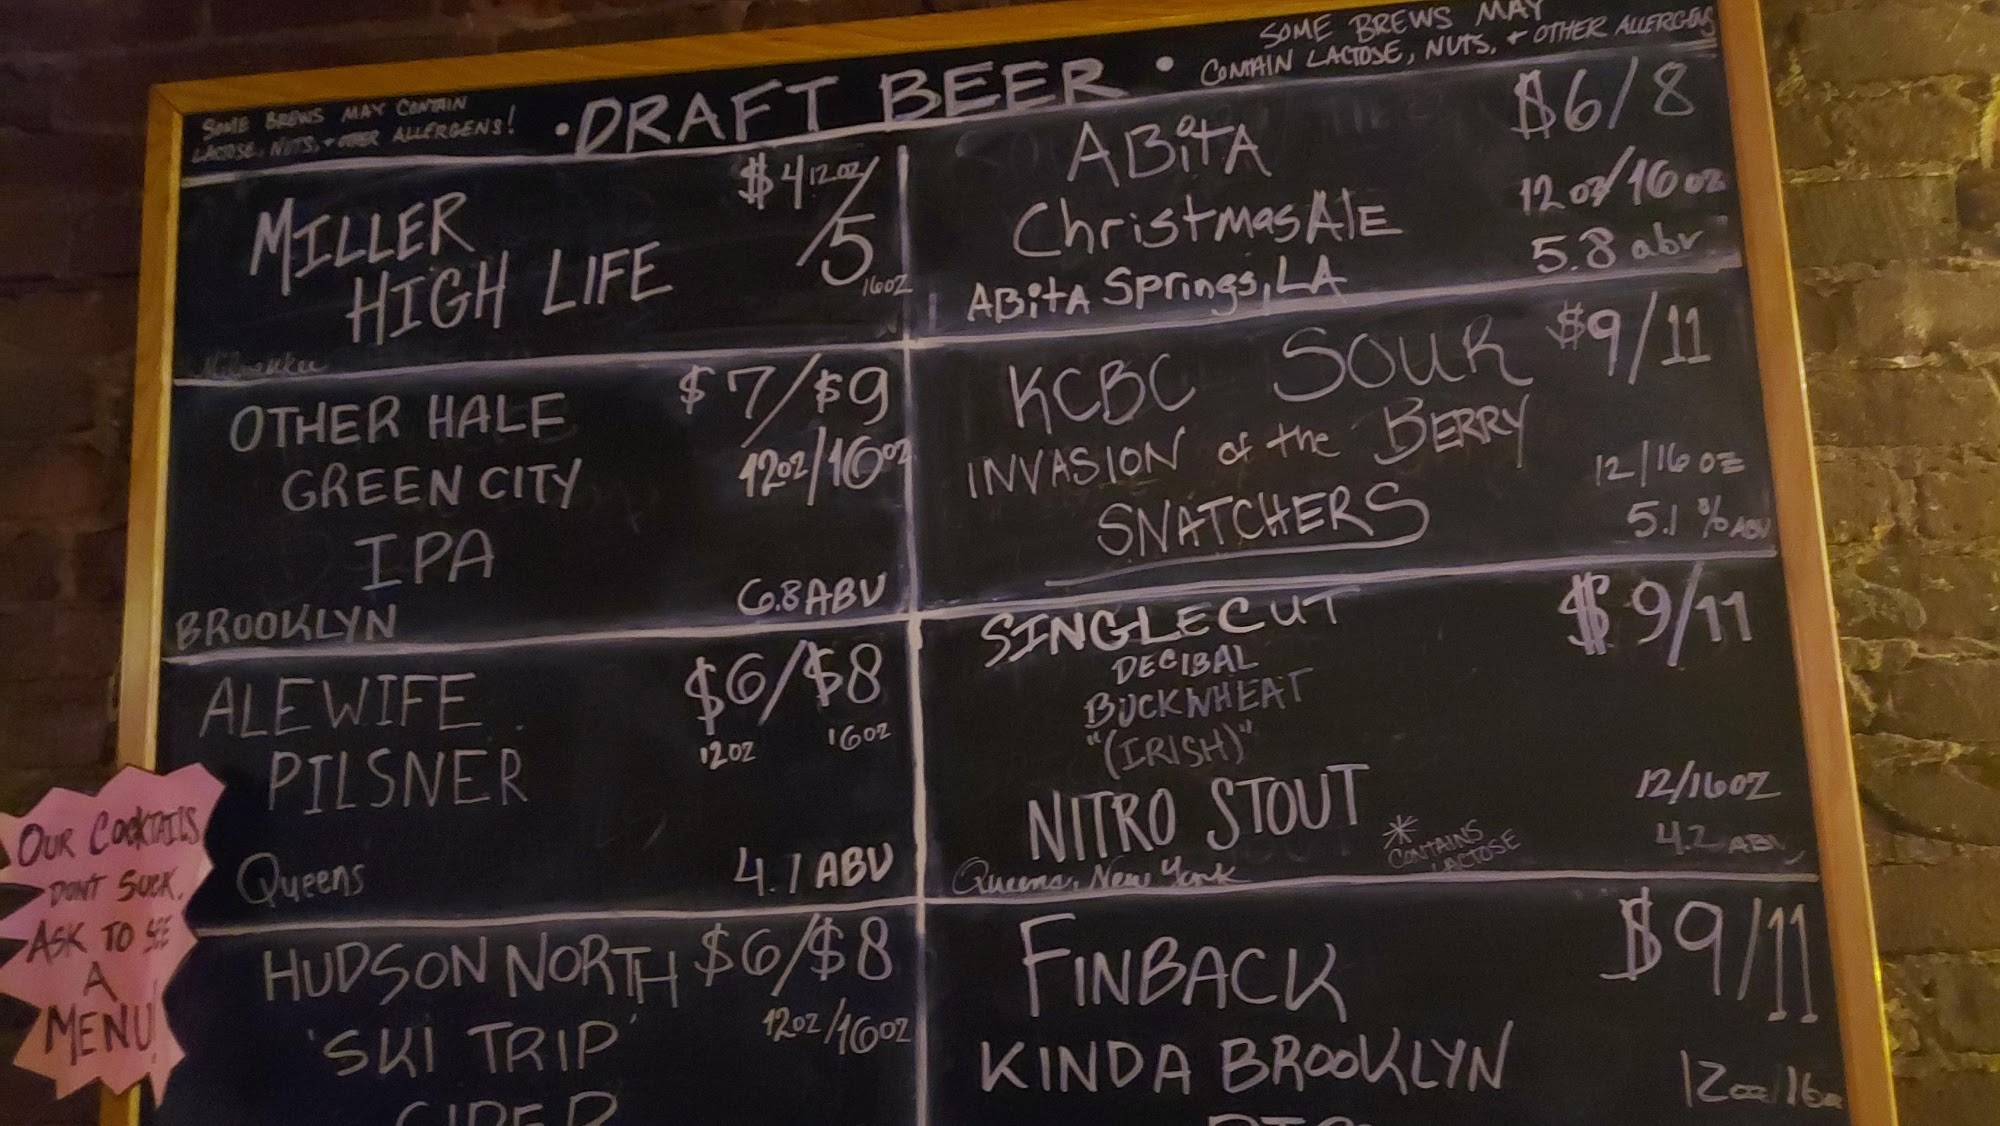 SOME BREWS MAY CONTAIN
LACTOSE, NUTS, + OTHER ALLERGENS!
• DRAFT BEER •
SOME BREWS MAY
CONTAIN LACTOSE, NUTS, + OTHER ALLERGENS
MILLER
HIGH LIFE
$4 12oz/
5
16oz
Milwaukee
OTHER HALE
GREEN CITY
IPA
$7/$9
12oz/16oz
6.8 ABV
BROOKLYN
ALEWIFE
PILSNER
$6/$8
12oz 16oz
Queens
4.1 ABV
HUDSON NORTH
'SKI TRIP'
CIDER
$6/$8
12oz/16oz
ABiTA
ChristmasAlE
ABitA Springs, LA
$6/8
12 oz/16 oz
5.8 abv
KCBC SOUR
INVASION of the BERRY
SNATCHERS
$9/11
12/16 oz
5.1 % ABV
SINGLECUT
DECIBAL
BUCKWHEAT
"(IRISH)"
NITRO STOUT
Queens, New York
* CONTAINS
LACTOSE
$9/11
12/16oz
4.2 ABV
FINBACK
KINDA BROOKLYN
$9/11
12oz/16oz
OUR COCKTAILS
DONT SUCK.
ASK TO SEE
A
MENU!